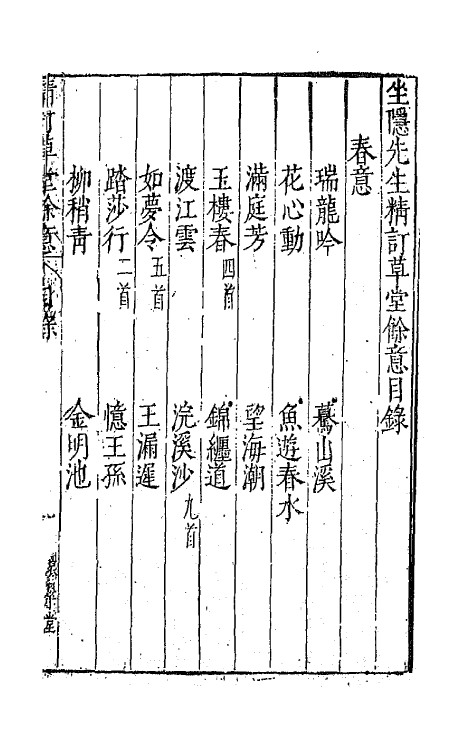 坐隱先生精訂草堂餘意目錄
春意
瑞龍吟 驀山溪
花心動 魚遊春水
滿庭芳 望海潮
玉樓春四首 錦纏道
渡江雲 浣溪沙九首
如夢令五首 玉漏遲
踏莎行二首 憶王孫
柳稍青 金明池
精訂草堂餘意 目錄 一 環翠堂